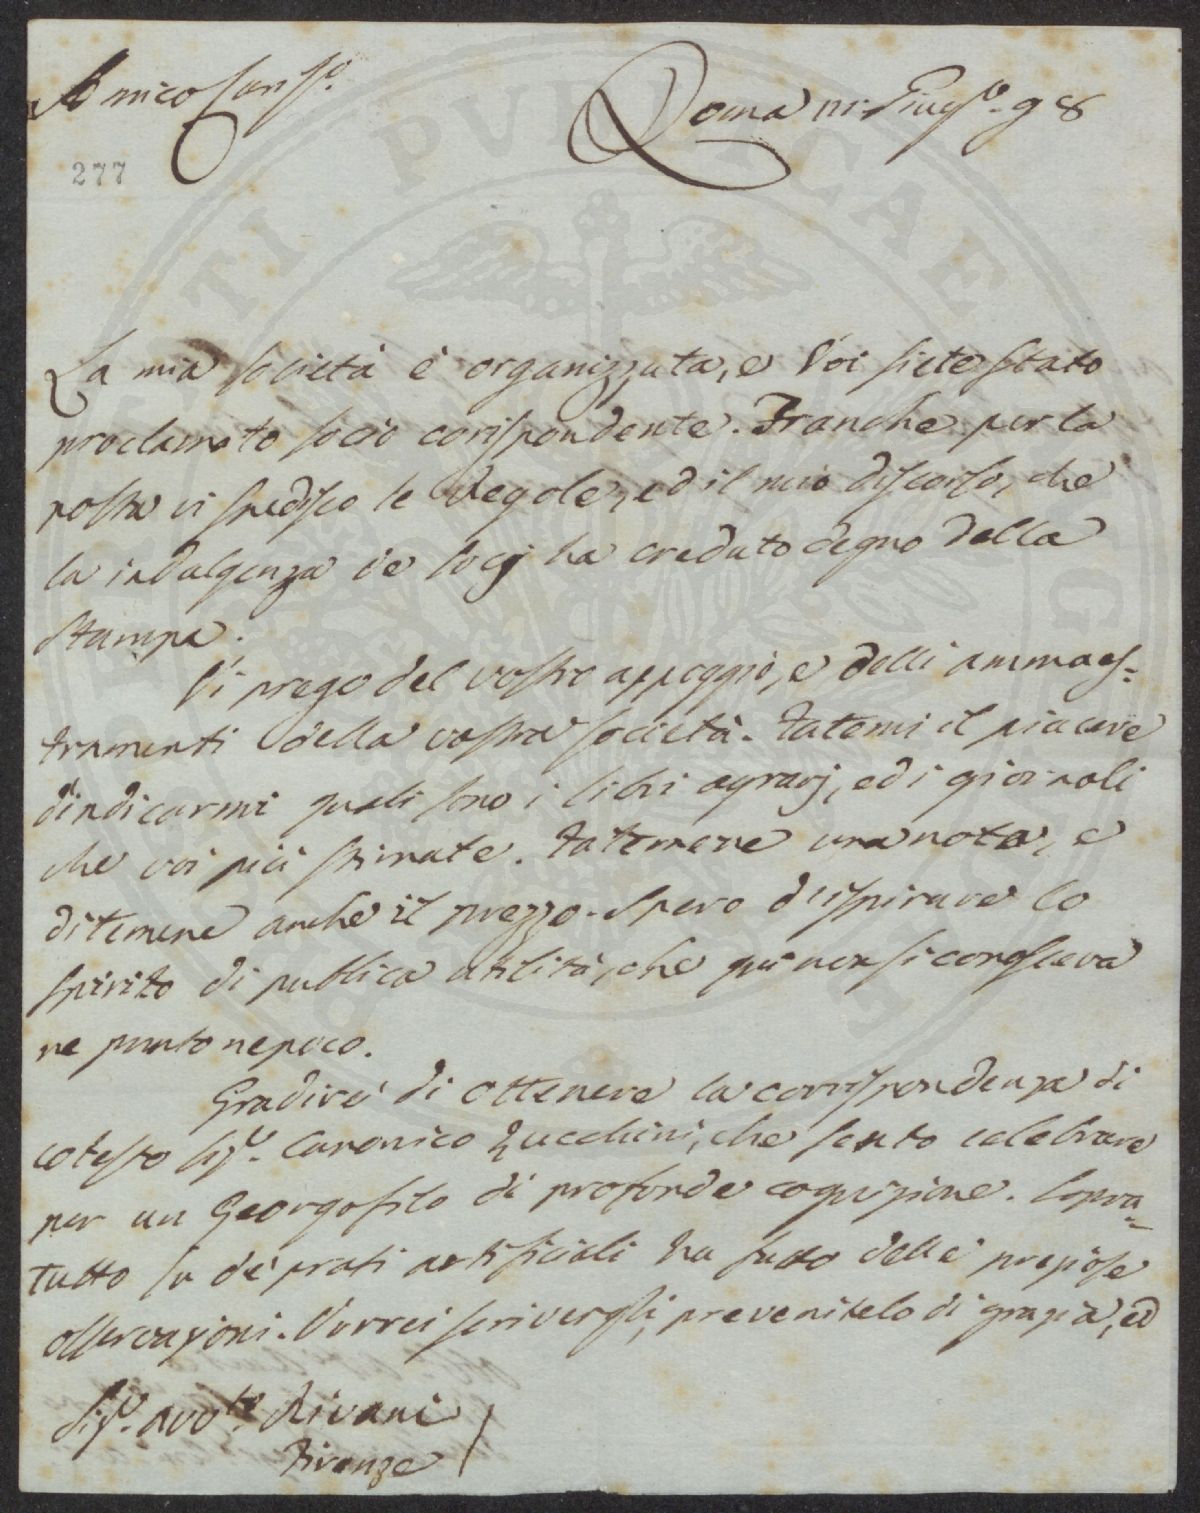 Amico Cariss.o
Roma 111. Giug.o 98
277
La mia società è organizzata, e Voi siete stato
proclamato socio corispondente. Franche per la
posta vi spedisco le Regole, ed il mio discorso, che
la indulgenza de' Socj ha creduto degno della
stampa.
Vi prego del vostro appoggio, e delli ammaes-
tramenti della vostra società. Fatemi il piacere
d'indicarmi quali sono i libri agrarj, ed i giornali
che voi più stimate. Fatemene una nota, e
ditemene anche il prezzo. Spero d'ispirare lo
spirito di publica utilità, che quì non si conosceva
ne punto ne poco.
Gradirei di ottenere la corrispondenza di
cotesto Sig.r Canonico Zucchini, che sento celebrare
per un Georgofilo di profonde cognizione. Sopra-
tutto su de' prati artificiali ha fatto delle preziose
osservazioni. Vorrei scrivergli, prevenitelo di grazia, ed
Sig.r Avv.to Rivani
Firenze